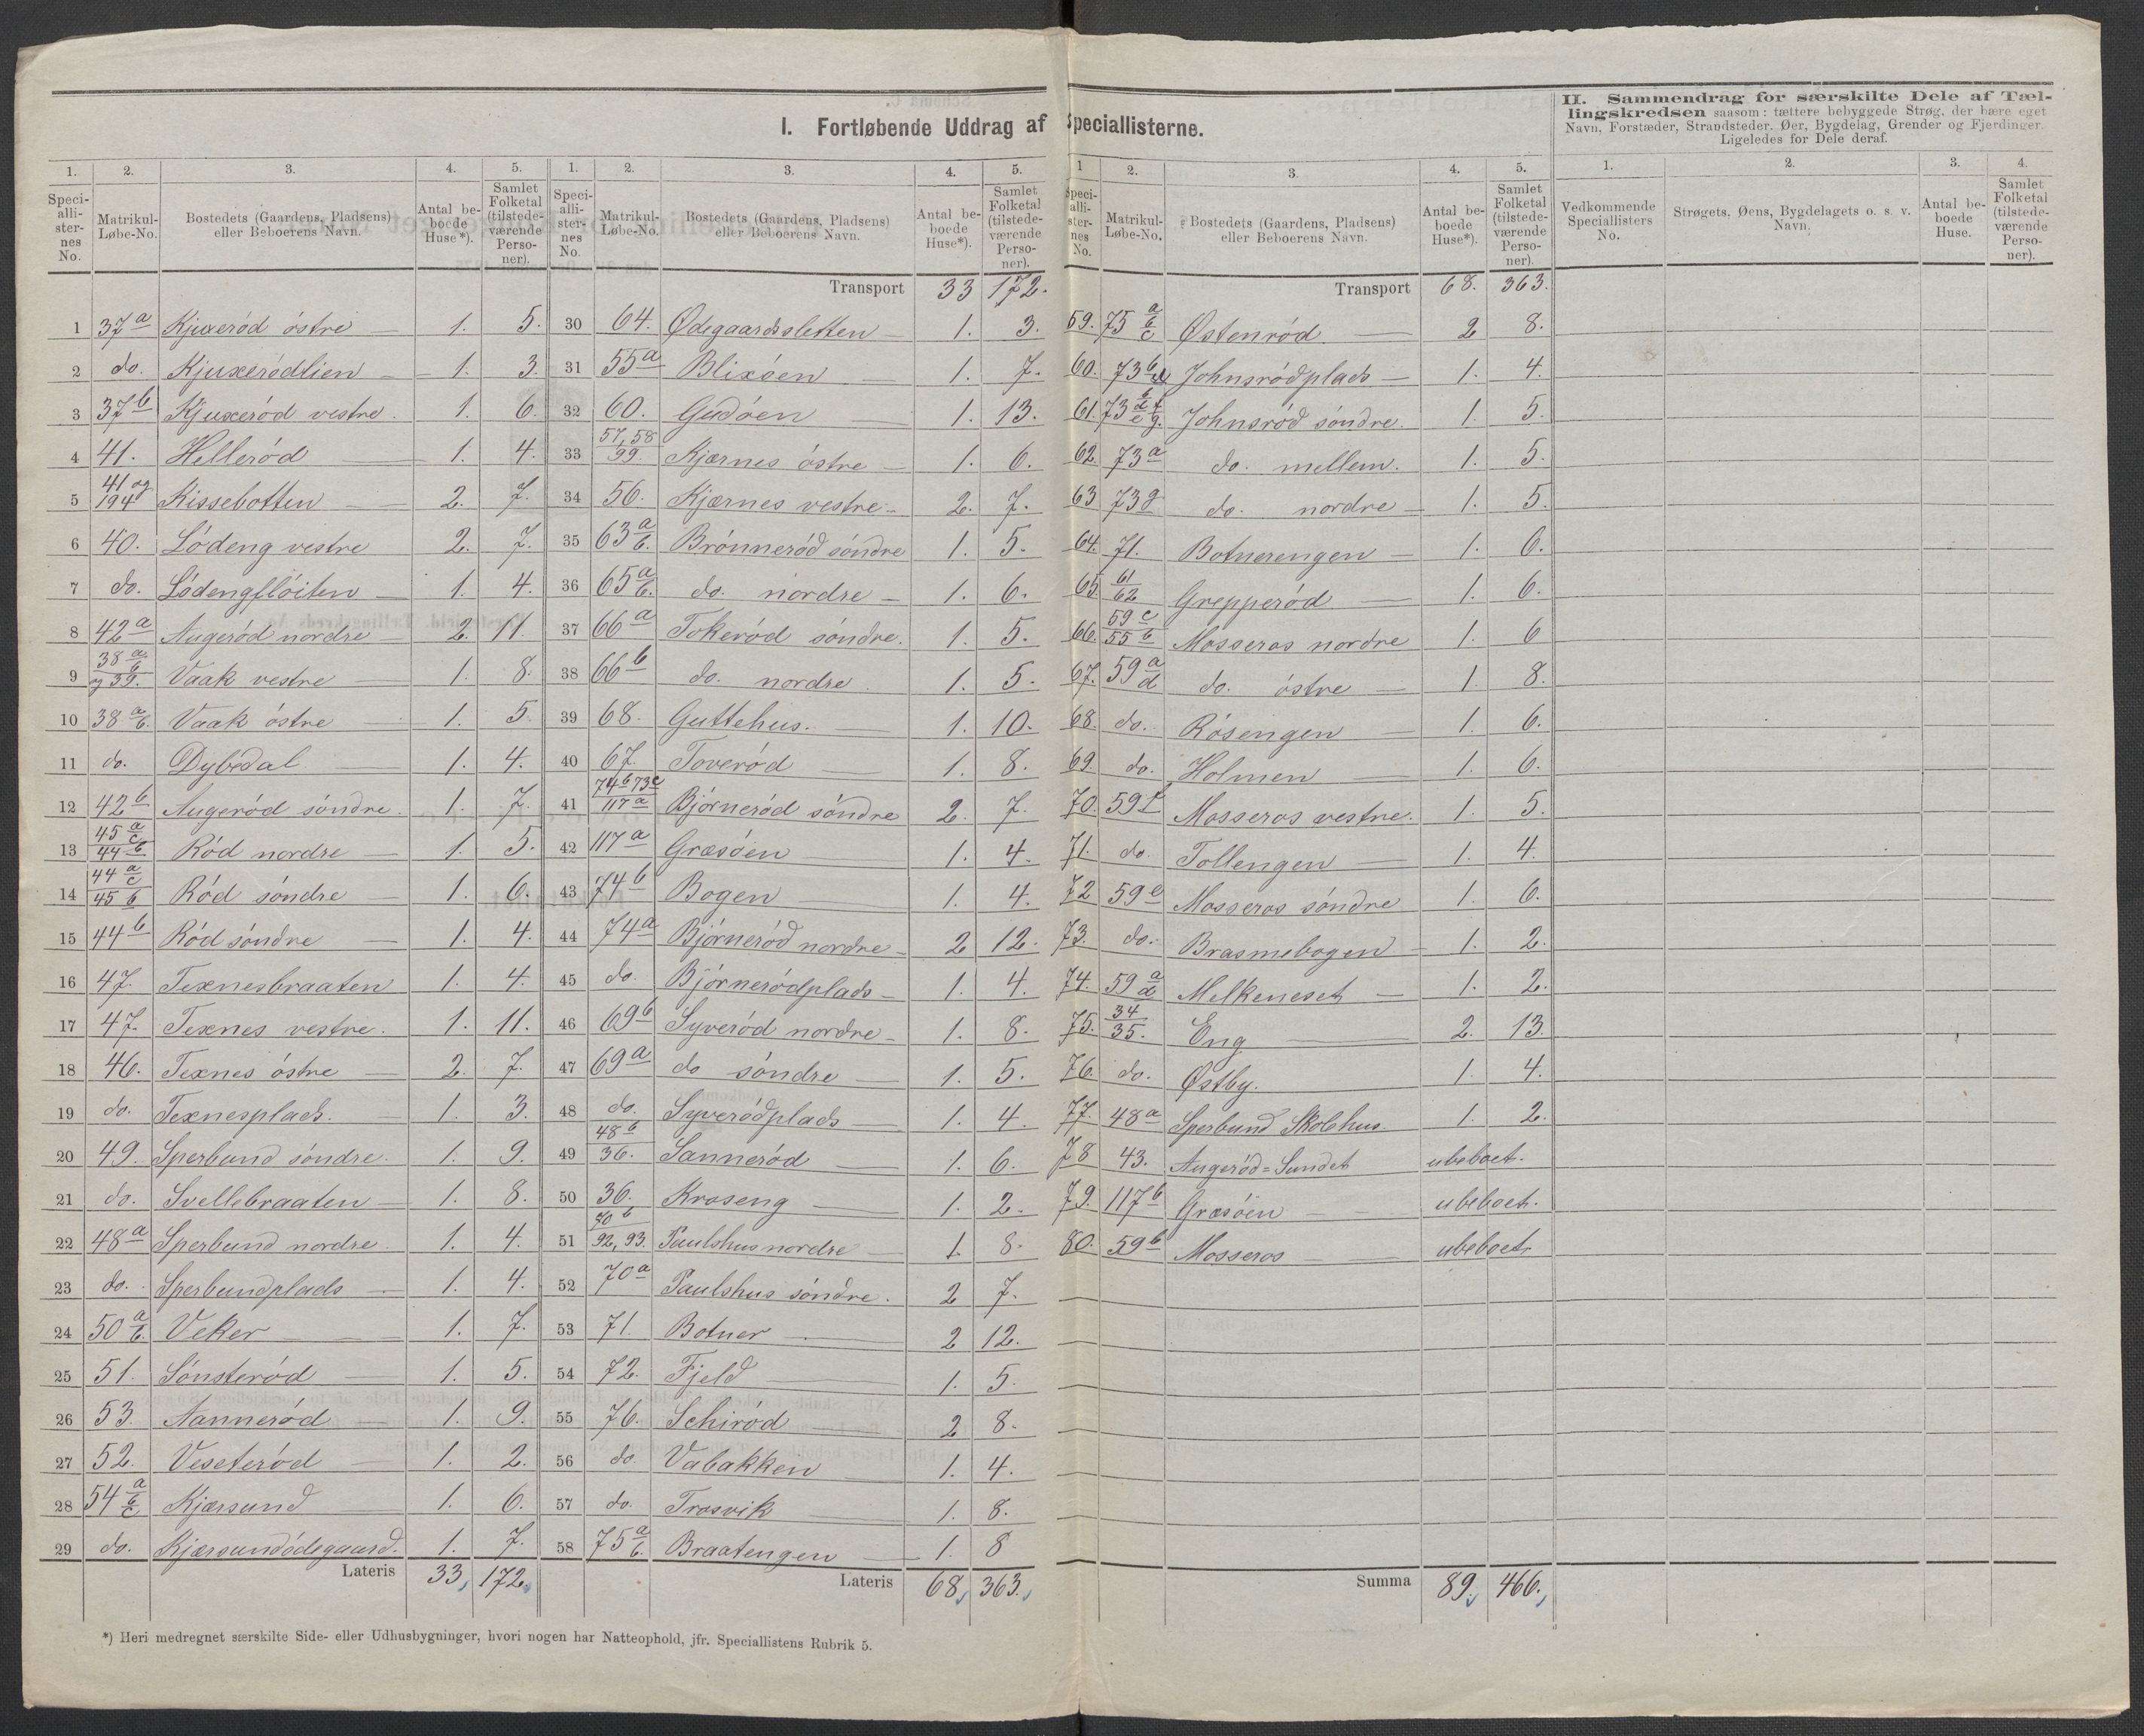 I. Fortløbende Uddrag af Speciallisterne.
1. 2. 3. 4. 5.
Speciallisternes No. Matrikul-Løbe-No. Bostedets (Gaardens, Pladsens) eller Beboerens Navn. Antal beboede Huse*). Samlet Folketal (tilstedeværende Personer).
1 37a Kjuxerød østre 1. 5.
2 do. Kjuxerødlien 1. 3.
3 37b Kjuxerød vestre. 1. 6.
4 41. Hellerød 1. 4.
5 41 og 194 Kissebotten 2. 7.
6 40. Lödeng vestre 2. 7.
7 do. Lödengflöiten 1. 4.
8 42a Augeröd nordre 2. 11.
9 38 a b og 39. Vaak vestre 1. 8.
10 38 a b. Vaak östre 1. 5.
11 do. Dybedal 1. 4.
12 42b Augeröd söndre. 1. 7.
13 45 a c 44 b Röd nordre 1. 5.
14 44 a c 45 b Röd söndre 1. 6.
15 44b Röd söndre 1. 4.
16 47. Texnesbraaten 1. 4.
17 47. Texnes vestre. 1. 11.
18 46. Texnes östre 2. 7.
19 do. Texnesplads. 1. 3.
20 49. Sperbund söndre. 1. 9.
21 do. Svellebraaten 1. 8.
22 48a Sperbund nordre. 1. 4.
23 do. Sperbundplads 1. 4.
24 50 a b. Veker 1. 7.
25 51. Sönsteröd 1. 5.
26 53. Aanneröd 1. 9.
27 52. Veseteröd 1. 2.
28 54 a b c Kjærsund 1. 6.
29 do. Kjærsundödegaard. 1. 7.
Lateris 33, 172.
1. 2. 3. 4. 5.
Speciallisternes No. Matrikul-Løbe-No. Bostedets (Gaardens, Pladsens) eller Beboerens Navn. Antal beboede Huse*). Samlet Folketal (tilstedeværende Personer).
Transport 33 172.
30 64. Ødegaardssletten 1. 3.
31 55a Blixöen 1. 7.
32 60. Gudöen 1. 13.
33 57, 58 99. Kjærnes östre 1. 6.
34 56. Kjærnes vestre 2. 7.
35 63 a b. Brönneröd söndre 1. 5.
36 65 a b. do. nordre 1. 6.
37 66a Tokeröd söndre. 1. 5.
38 66b do. nordre 1. 5.
39 68. Guttehus. 1. 10.
40 67. Toveröd 1. 8.
41 74b 73c 117a Björneröd söndre 2. 7.
42 117a Græsöen 1. 4.
43 74b Bogen 1. 4.
44 74a Björneröd nordre 2 12.
45 do. Björnerödplads 1. 4.
46 69b Syveröd nordre 1. 8.
47 69a do söndre 1. 5.
48 do. Syverödplads 1. 4.
49 48b 36. Sanneröd 1. 6.
50 36. Kroseng 1. 2.
51 70 b 92, 93. Paulshus nordre 1. 8.
52 70a Paulshus söndre. 2 7.
53 71. Botner 2 12.
54 72. Fjeld 1. 5.
55 76. Schiröd 2 8.
56 do. Vabakken 1. 4.
57 do. Trosvik 1. 8.
58 75 a b. Braatengen 1. 8
Lateris 68, 363.
1 2. 3. 4. 5.
Speciallisternes No. Matrikul-Løbe-No. Bostedets (Gaardens, Pladsens) eller Beboerens Navn. Antal beboede Huse*). Samlet Folketal (tilstedeværende Personer).
Transport 68. 363.
59. 75 a b c Østenröd. 2 8.
60. 73b Johnsrödplads 1. 4.
61. 73 Johnsröd söndre. 1. 5.
62. 73a do. mellem. 1. 5.
63 73g do. nordre 1. 5.
64. 71. Botnerengen 1. 6.
65. 61 62 Grepperöd 1. 6.
66. 59 c 55 b Mosseros nordre 1. 6
67. 59 a d do. östre 1. 8.
68. do. Rösengen 1. 6.
69. do. Holmen 1. 6.
70. 59f Mosseros vestre. 1. 5.
71. do. Tollengen 1. 4.
72 59e Mosseros söndre 1. 6.
73. do. Brasmebogen 1. 2.
74. 59 a d Melkeneset 1. 2.
75. 34 35. Eng 2. 13.
76. do. Østby. 1. 4.
77. 48a Sperbund Skolehus. 1. 2.
78 43. Augeröd=Sundet ubeboet.
79. 117b Græsöen ubeboet.
80. 59b Mosseros ubeboet.
Summa 89, 466.
II. Sammendrag for særskilte Dele af Tællingskredsen saasom: tættere bebyggede Strøg, der bære eget
Navn, Forstæder, Strandsteder, Øer, Bygdelag, Grender og Fjerdinger.
Ligeledes for Dele deraf.
1. 2. 3. 4.
Vedkommende Speciallisters No. Strøgets, Øens, Bygdelagets o. s. v. Navn. Antal beboede Huse. Samlet Folketal (tilstedeværende Personer).
*) Heri medregnet særskilte Side- eller Udhusbygninger, hvori nogen har Natteophold, jfr. Speciallistens Rubrik 5.